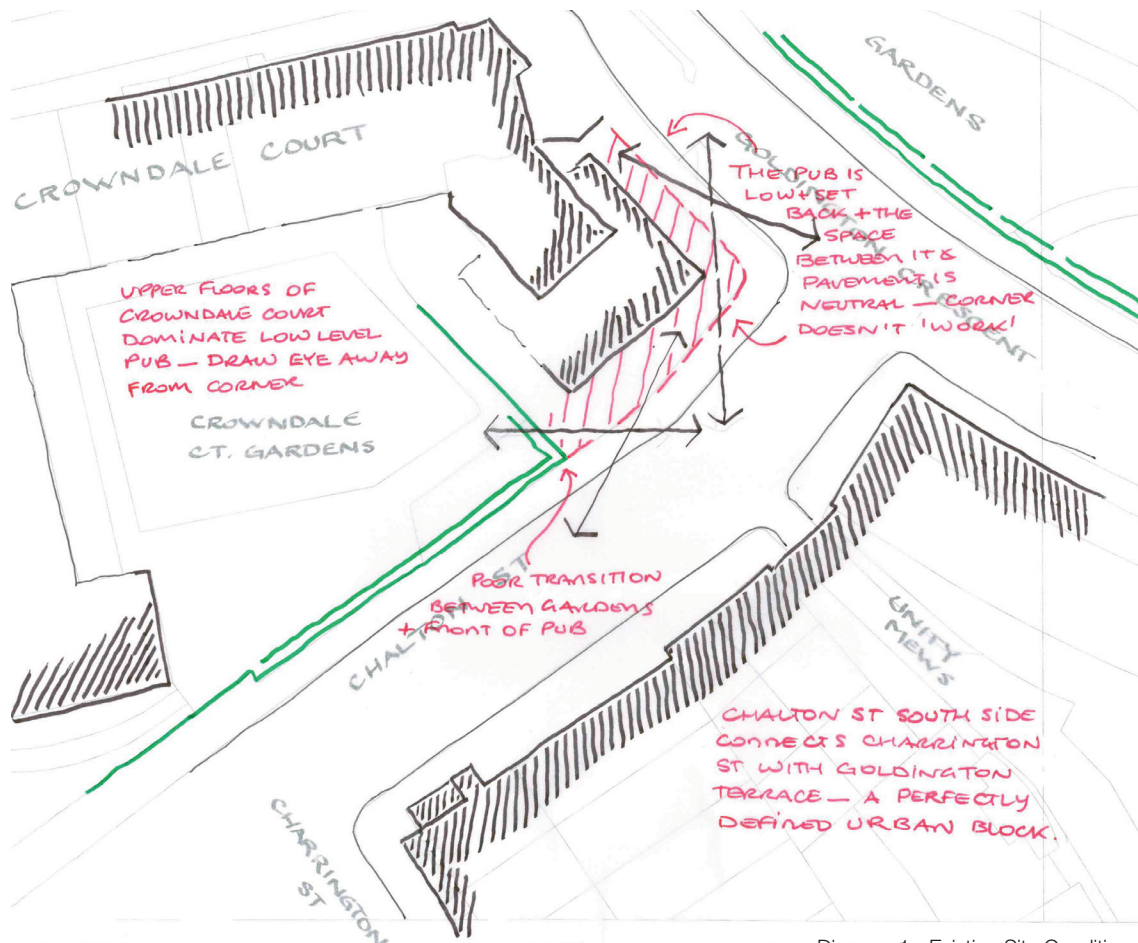 GARDENS
CROWNDALE COURT
GOLDINGTON CRESCENT
THE PUB IS
LOW + SET
BACK + THE
SPACE
BETWEEN IT &
PAVEMENT IS
NEUTRAL — CORNER
DOESN'T 'WORK'
UPPER FLOORS OF
CROWNDALE COURT
DOMINATE LOW LEVEL
PUB — DRAW EYE AWAY
FROM CORNER
CROWNDALE
CT. GARDENS
POOR TRANSITION
BETWEEN GARDENS
+ FRONT OF PUB
CHALTON ST
UNITY
MEWS
CHALTON ST SOUTH SIDE
CONNECTS CHARRINGTON
ST WITH GOLDINGTON
TERRACE — A PERFECTLY
DEFINED URBAN BLOCK.
CHARRINGTON
ST